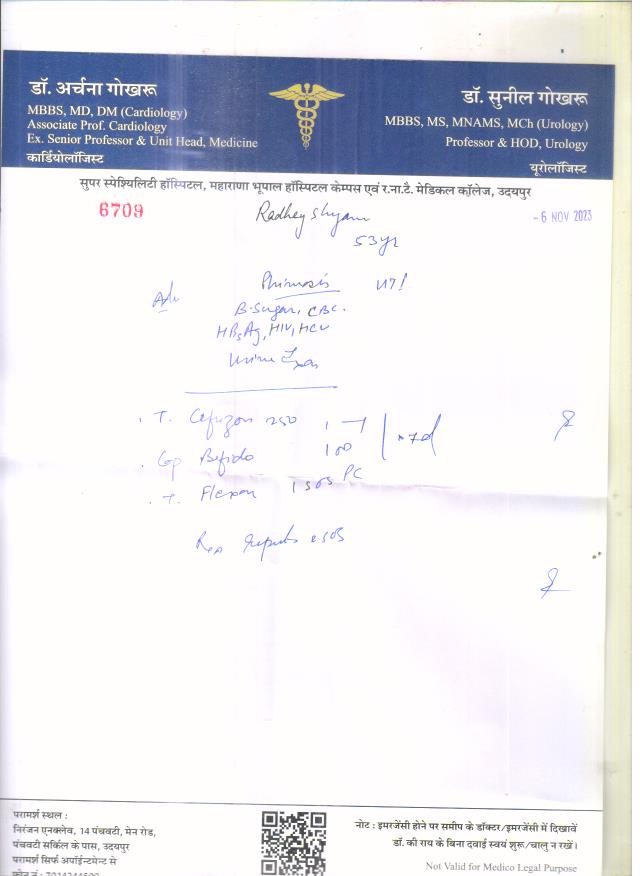 डॉ. अर्चना गोखरू
MBBS, MD, DM (Cardiology)
Associate Prof. Cardiology
Ex. Senior Professor & Unit Head, Medicine
कार्डियोलॉजिस्ट
डॉ. सुनील गोखरू
MBBS, MS, MNAMS, MCh (Urology)
Professor & HOD, Urology
यूरोलॉजिस्ट
सुपर स्पेश्यिलिटी हॉस्पिटल, महाराणा भूपाल हॉस्पिटल केम्पस एवं र.ना.टै. मेडिकल कॉलेज, उदयपुर
6709
Radhey Shyam
- 6 NOV 2023
53yr
Phimosis
Adv
B-Sugar, CBC.
HBsAg, HIV, HCV
Urine
T. 250
Cap Bifido 100
x 7d
T. Flexon 1 SOS PC
reports SOS
परामर्श स्थल :
निरंजन एनक्लेव, 14 पंचवटी, मेन रोड,
पंचवटी सर्किल के पास, उदयपुर
परामर्श सिर्फ अपॉईन्टमेन्ट से
नोट : इमरजेंसी होने पर समीप के डॉक्टर/इमरजेंसी में दिखावें
डॉ. की राय के बिना दवाई स्वयं शुरू/चालु न रखें।
Not Valid for Medico Legal Purpose